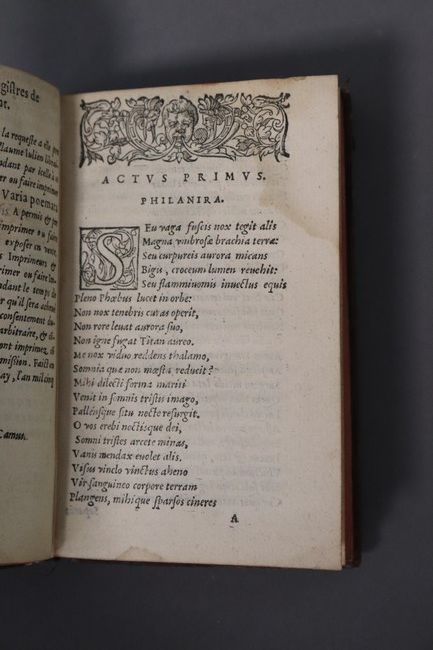 giſtres de
nt.
la requeſte a elle pre
llaume Iulien librai
ndant par icelle à
er ou faire imprimer
Varia poemata
is. A permis & per
imprimer ou faire
expoſer en vente
Imprimeurs &
er ou faire Im-
ndant le temps de
r qu'il ſera acheué
conſentement du-
arbitraire, &
ont imprimez,
miſſion. Faict en
ay, l'an mil cinq
Camus.
ACTVS PRIMVS.
PHILANIRA.
SEu vaga fuſcis nox tegit alis
Magna vmbroſæ brachia terræ:
Seu purpureis aurora micans
Bigis, croceum lumen reuehit:
Seu flammiuomis inuectus equis
Pleno Phœbus lucet in orbe:
Non nox tenebris curas operit,
Non rore leuat aurora ſuo,
Non igne fugat Titan aureo.
Me nox viduo reddens thalamo,
Somnia quæ non mœſta reducit?
Mihi dilecti forma mariti
Venit in ſomnis triſtis imago,
Pallénſque ſitu nocte reſurgit.
O vos erebi noctiſque dei,
Somni triſtes arcete minas,
Vanis mendax euolet alis.
Viſus vinclo vinctus aheno
Vir ſanguineo corpore terram
Plangens, mihique ſparſos cineres
A